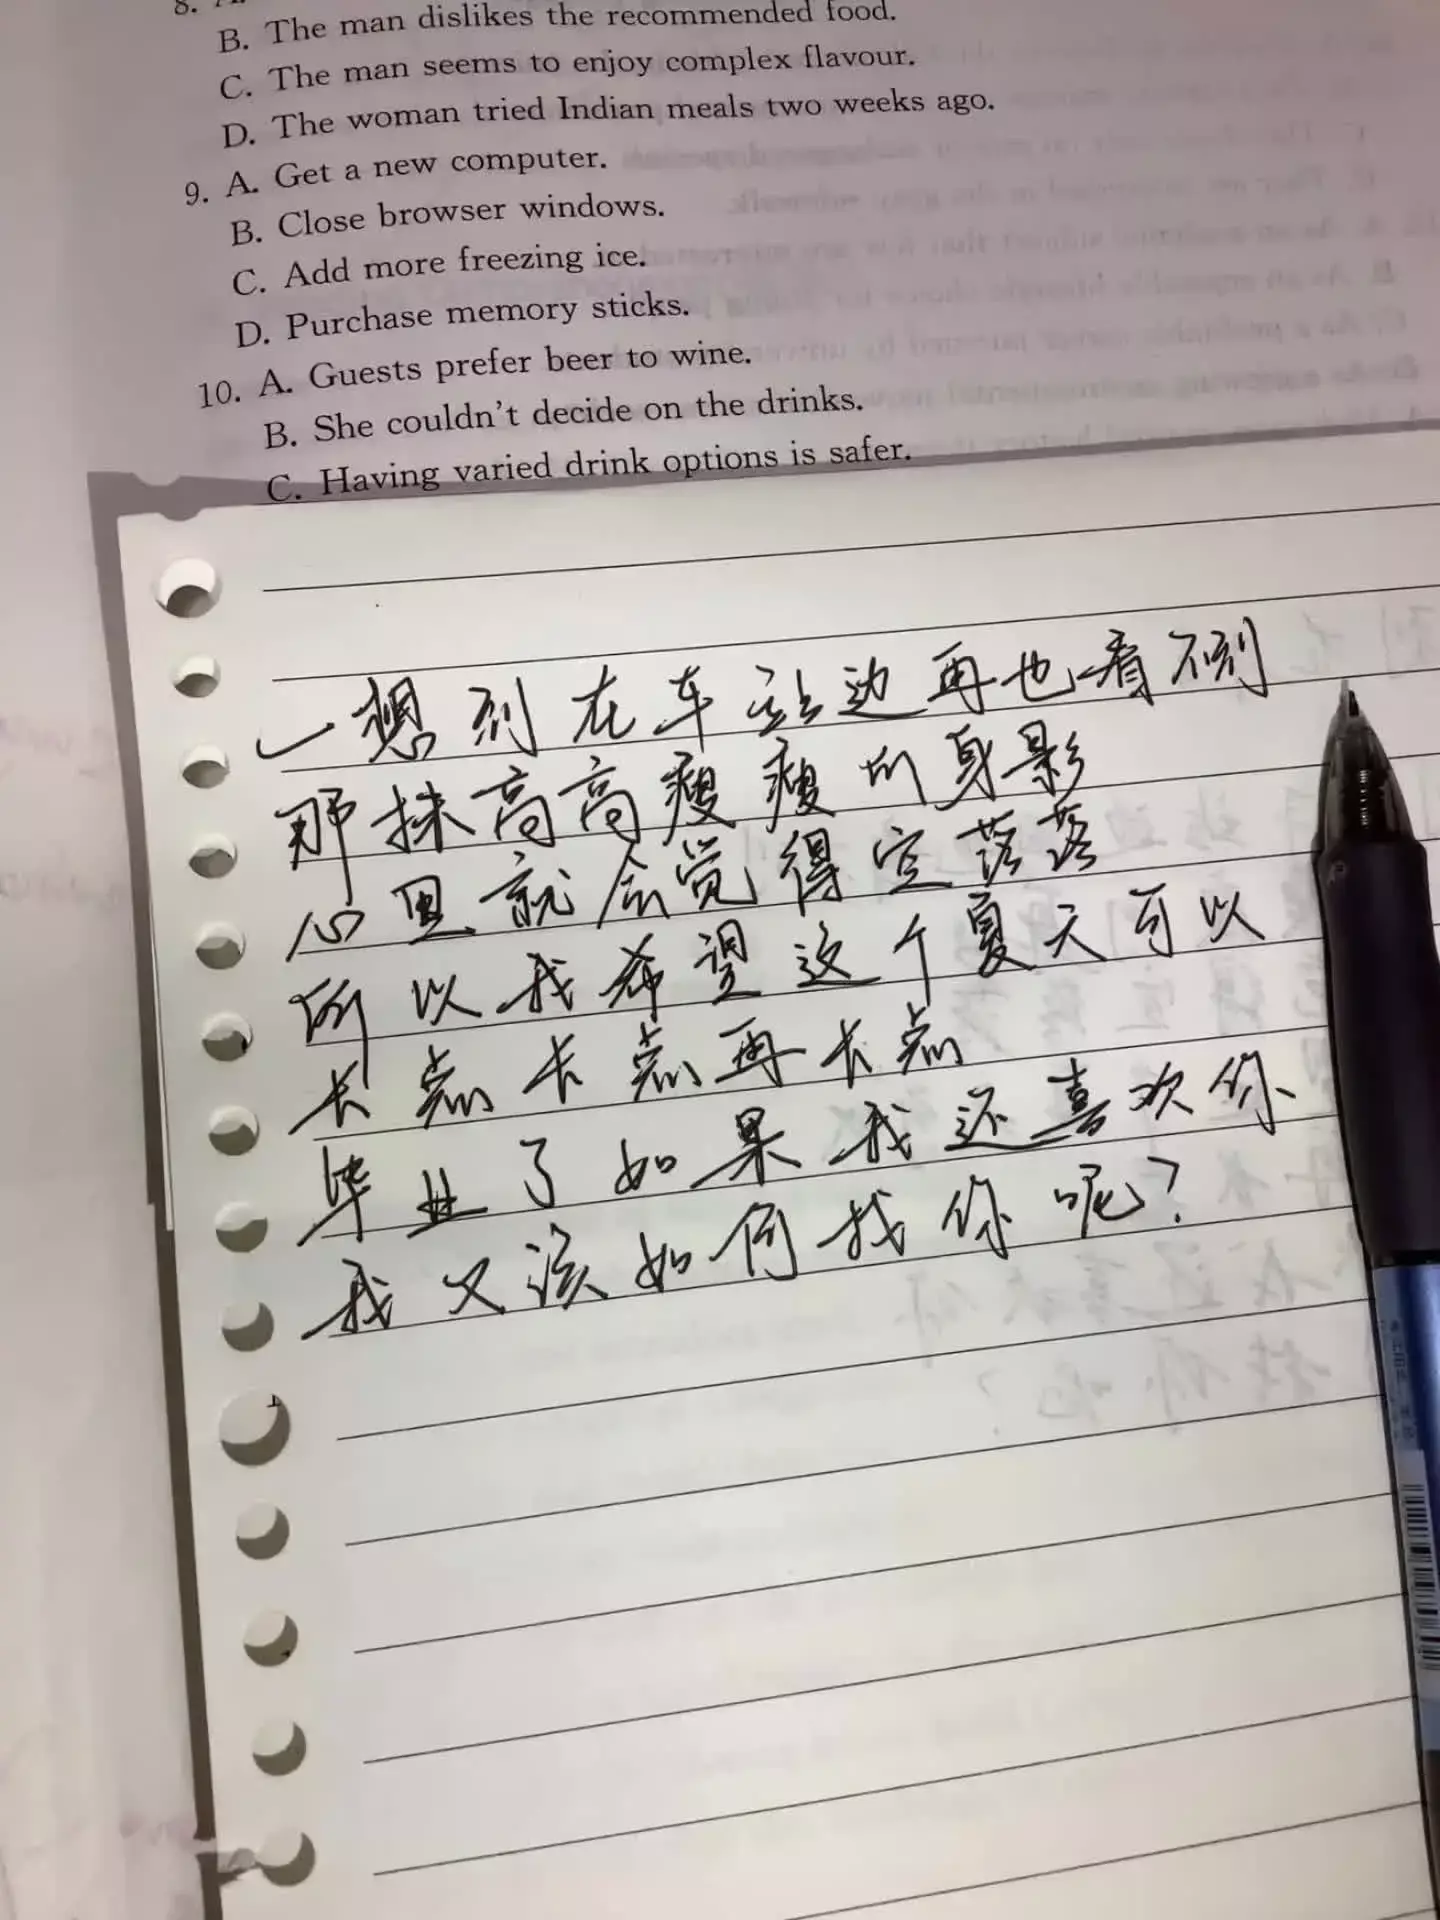 8. A.
B. The man dislikes the recommended food.
C. The man seems to enjoy complex flavour.
D. The woman tried Indian meals two weeks ago.
9. A. Get a new computer.
B. Close browser windows.
C. Add more freezing ice.
D. Purchase memory sticks.
10. A. Guests prefer beer to wine.
B. She couldn't decide on the drinks.
C. Having varied drink options is safer.
一想到在车站边再也看不到
那抹高高瘦瘦的身影
心里就会觉得空落落
所以我希望这个夏天可以
长点长点再长点
毕业了如果我还喜欢你
我又该如何找你呢?